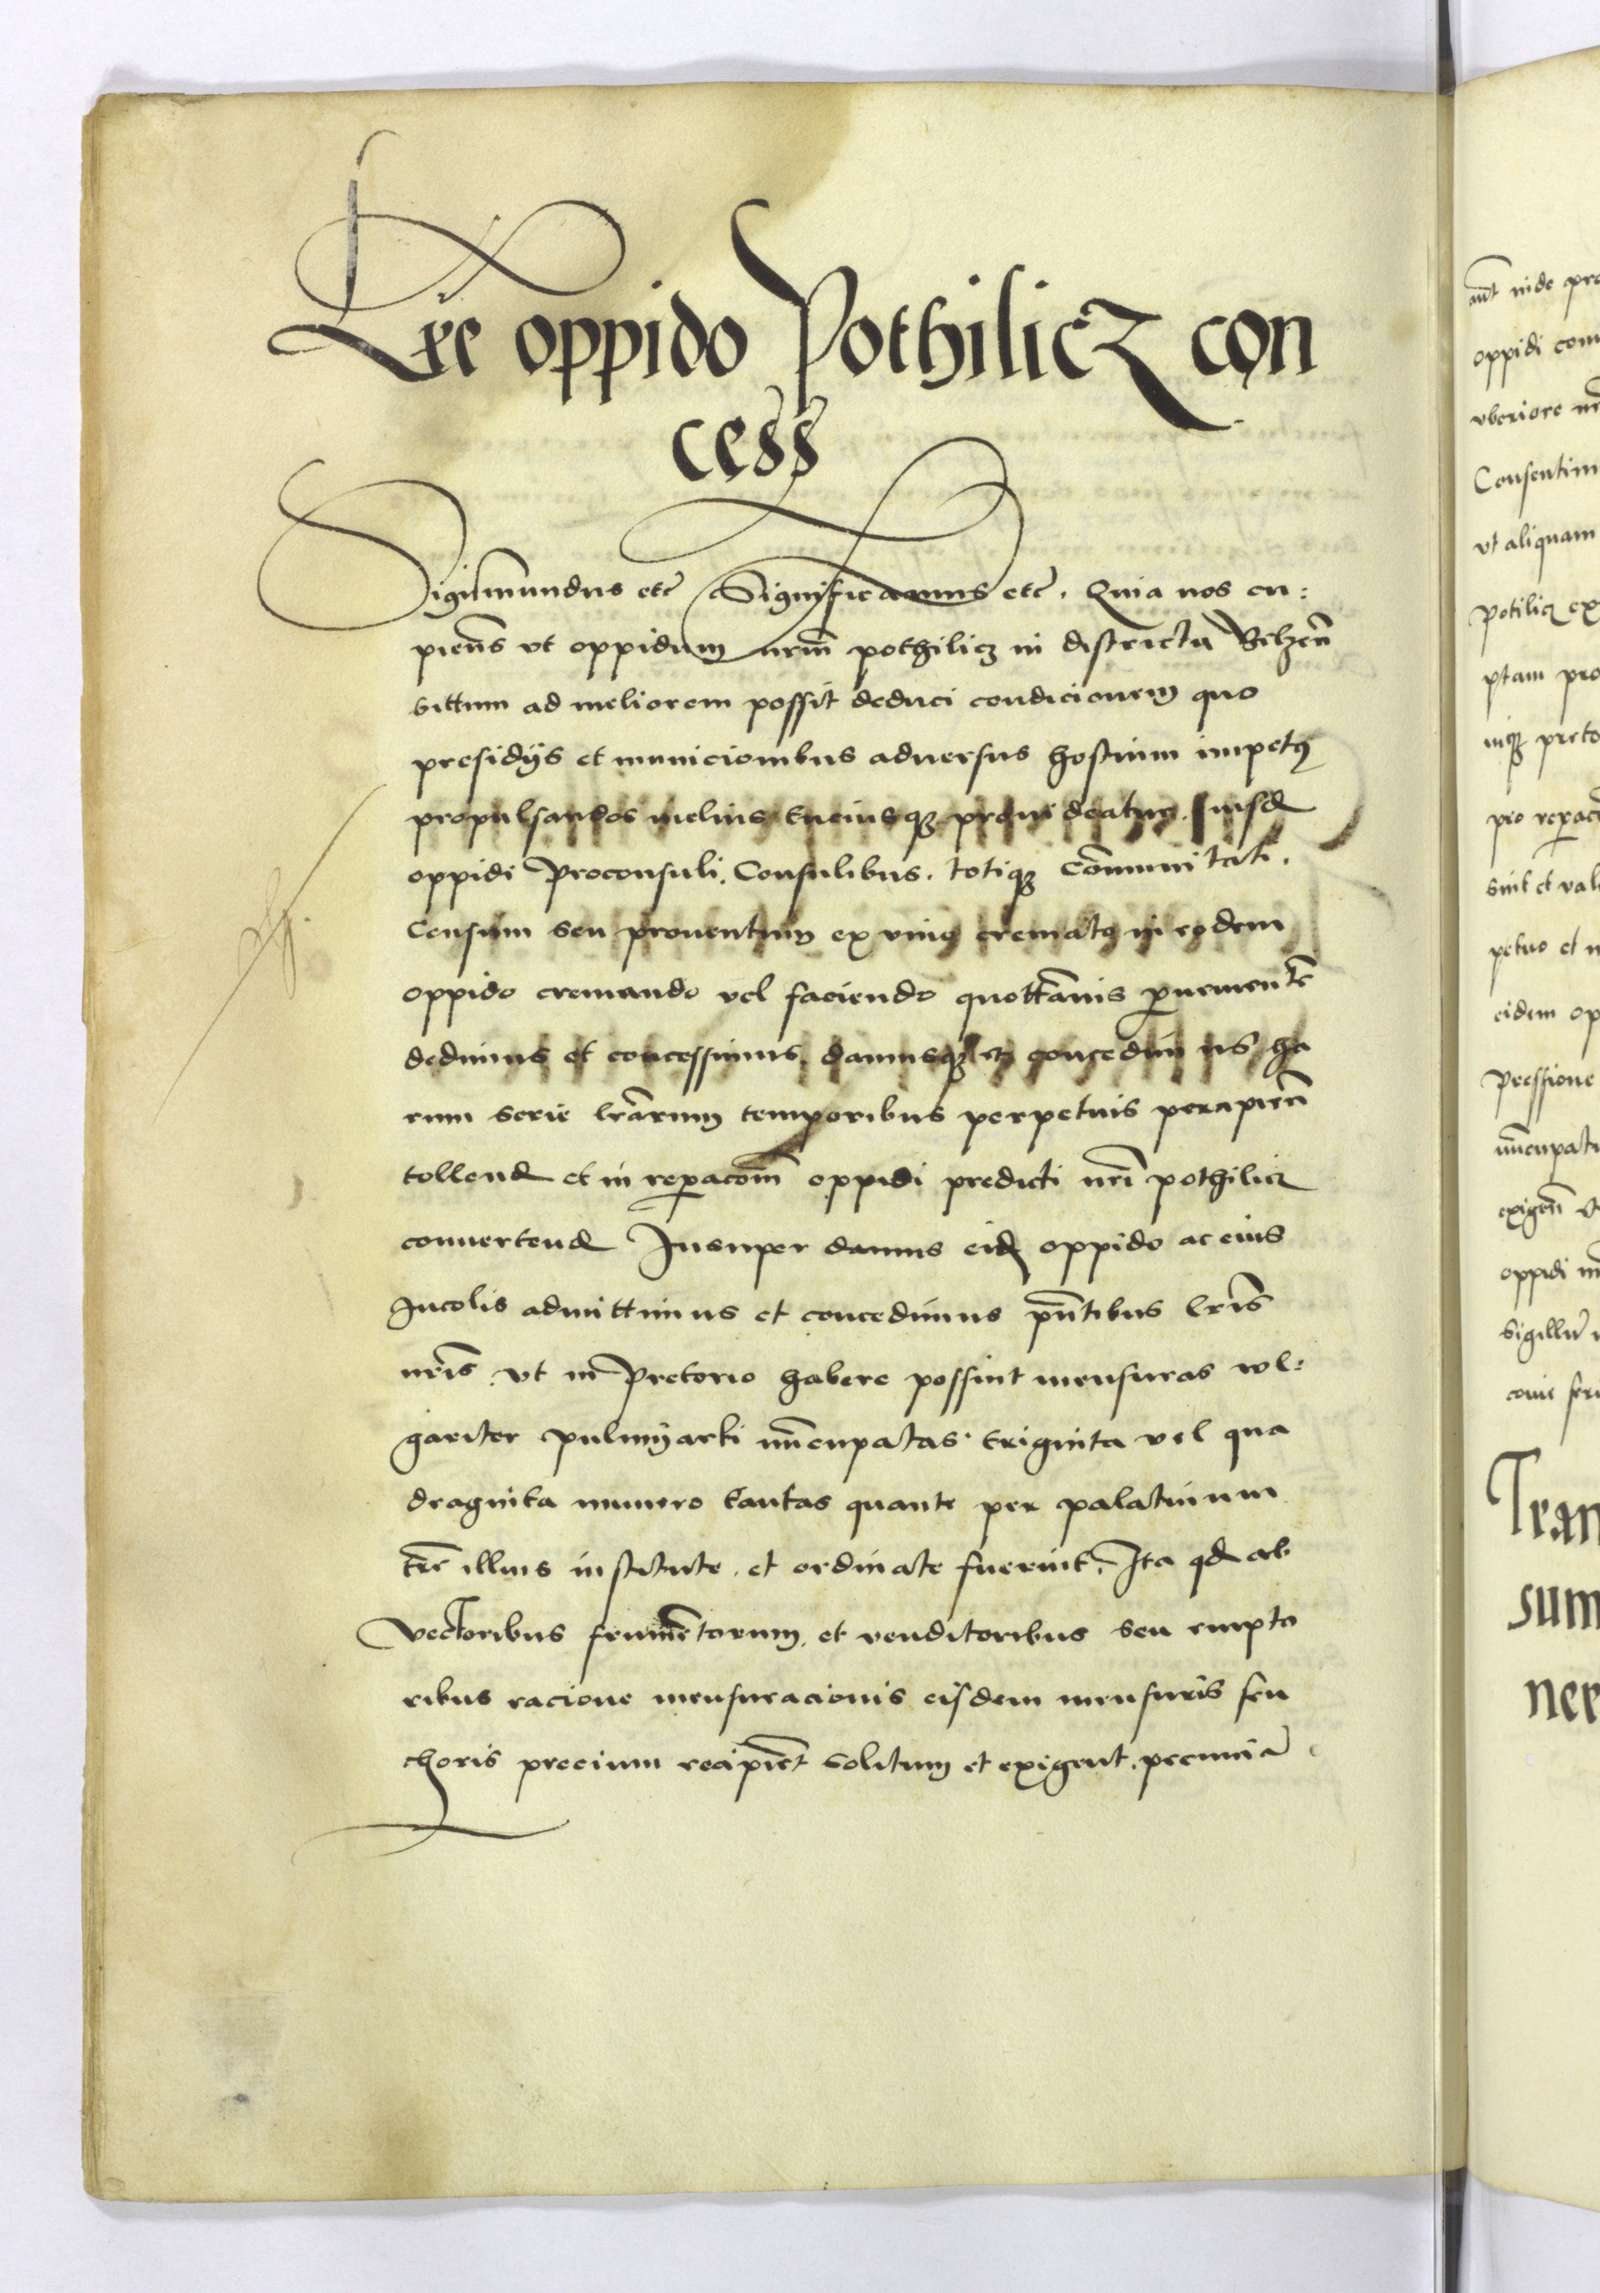 Lre oppido Pothilicz con
cess
Sigismundus etc Significamus etc. Quia nos cu:
piens vt oppidum nrm̄ pothilicz in districtu Belzen̄
sittum ad meliorem possit deduci condicionem quo
presidijs et municionibus aduersus hostium impetꝰ
propulsandos melius tuciusqꝫ prouideatur. Eiusd
oppidi Proconsuli. Consulibus. totiqꝫ Com̄unitati.
Censum seu prouentum ex vino cremato in eodem
oppido cremando vel faciendo quottannis ꝑuenientē
dedimus et concessimus. damusqꝫ et concedimus ha
rum serie lr̄arum temporibus perpetuis percipien̄
tollend et in reꝑacom̄ oppidi predicti nr̄i pothilicz
conuertend Insuper damus eidꝫ oppido ac eius
Incolis admittimus et concedimus pn̄tibus lr̄is
nr̄is. vt in Pretorio habere possint mensuras wl:
gariter pulmyarki nūcupatas. triginta vel qua
draginta numero tantas quante per palatinum
terr̄ illius institute. et ordinate fuerint. Ita qd ab
vectoribus frumētorum. et venditoribus seu empto
ribus racione mensuracionis eisdem mensuris seu
choris precium recipient solitum et exigent. pecuniā
aūt inde pro
oppidi com
vberiore nr
Consentim
vt aliquam
potilicz ex
ptam pro
pro reꝑac
sint et val
petuo et
eidem op
pressione
nūcupat
exigen̄
oppidi
Sigillū
Tran
sum
ner